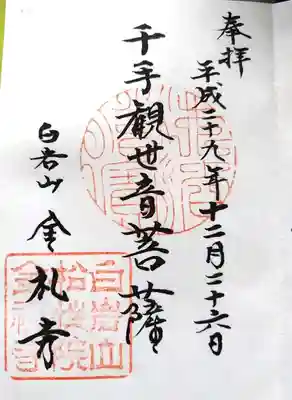 奉拝
平成二十九年十二月二十六日
千手觀世音菩薩
白岩山 金札寺
白岩山
金札寺